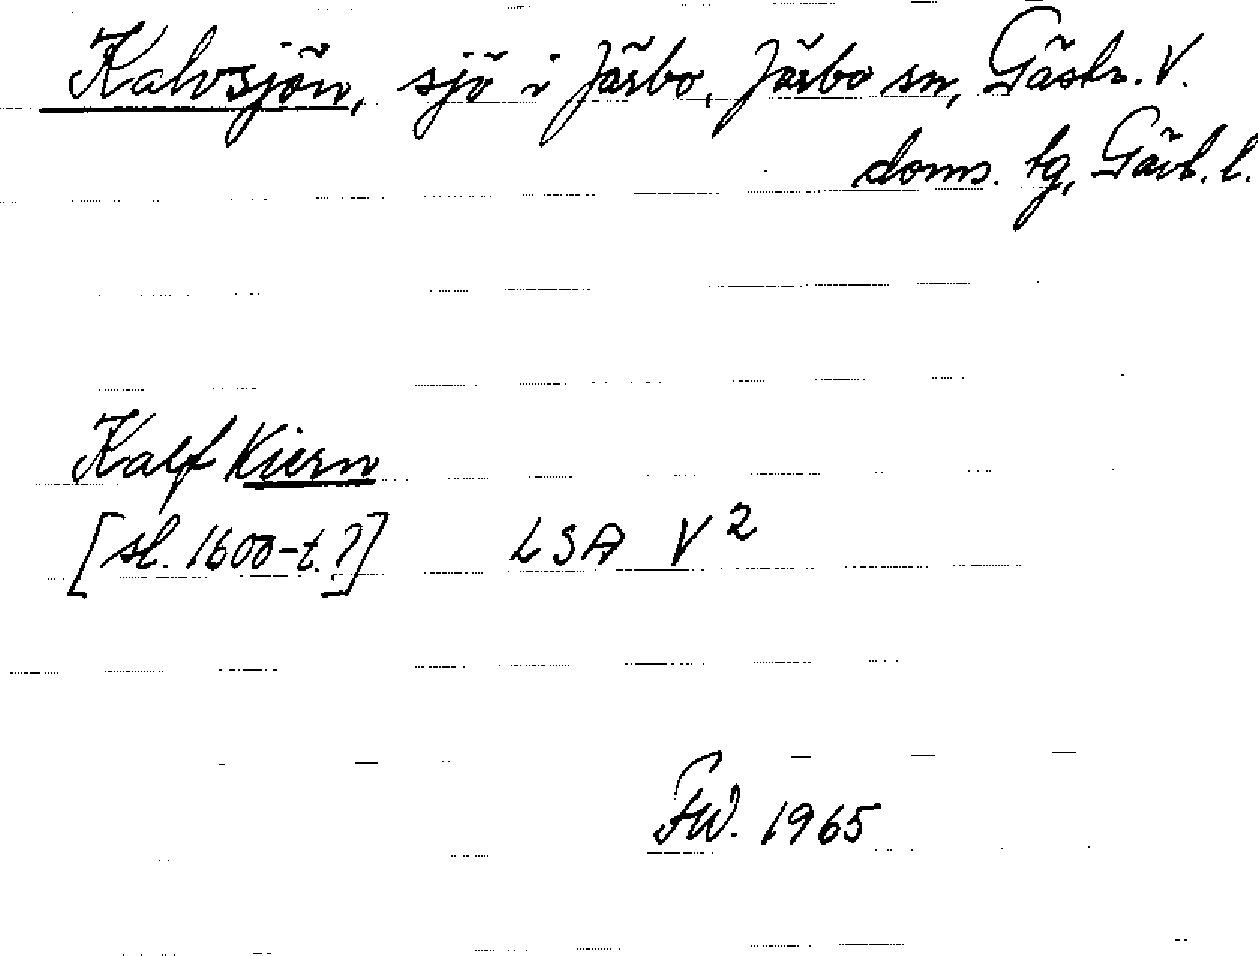 Kalvsjön, sjö i Järbo, Järbo sn, Gästr. V.
doms. tg, Gävl. l.
Kalf Kiern
[sl. 1600-t.?] LSA V²
FW. 1965